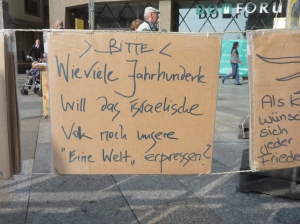 DOM FORU
> BITTE <
Wie viele Jahrhunderte
will das israelische
Volk noch unsere
"Eine Welt" erpressen?
Als
wünsch
sich
jeder
Friede